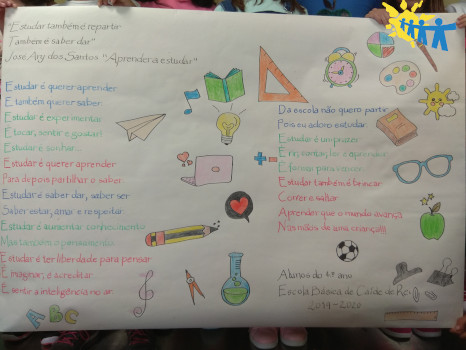 "Estudar também é repartir
Também é saber dar"
José Ary dos Santos "Aprender a estudar"
Estudar é querer aprender
E também querer saber
Estudar é experimentar
É tocar, sentir e gostar!
Estudar é sonhar...
Estudar é querer aprender
Para depois partilhar o saber
Estudar é saber dar, saber ser
Saber estar, amar e respeitar
Estudar é aumentar conhecimento
Mas também o pensamento
Estudar é ter liberdade para pensar
É imaginar, é acreditar
É sentir a inteligência no ar.
Da escola não quero partir
Pois eu adoro estudar
Estudar é um prazer
Errar, cantar, ler e aprender
Estudar também é brincar
Correr e saltar
Aprender que o mundo avança
Nas mãos de uma criança!!!
Alunos do 4.º ano
Escola Básica de Calde de Rei
2019-2020
ABC